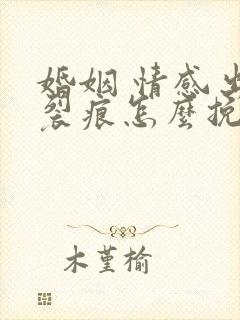 婚姻 情感出
裂痕怎麼挽
木堇榆